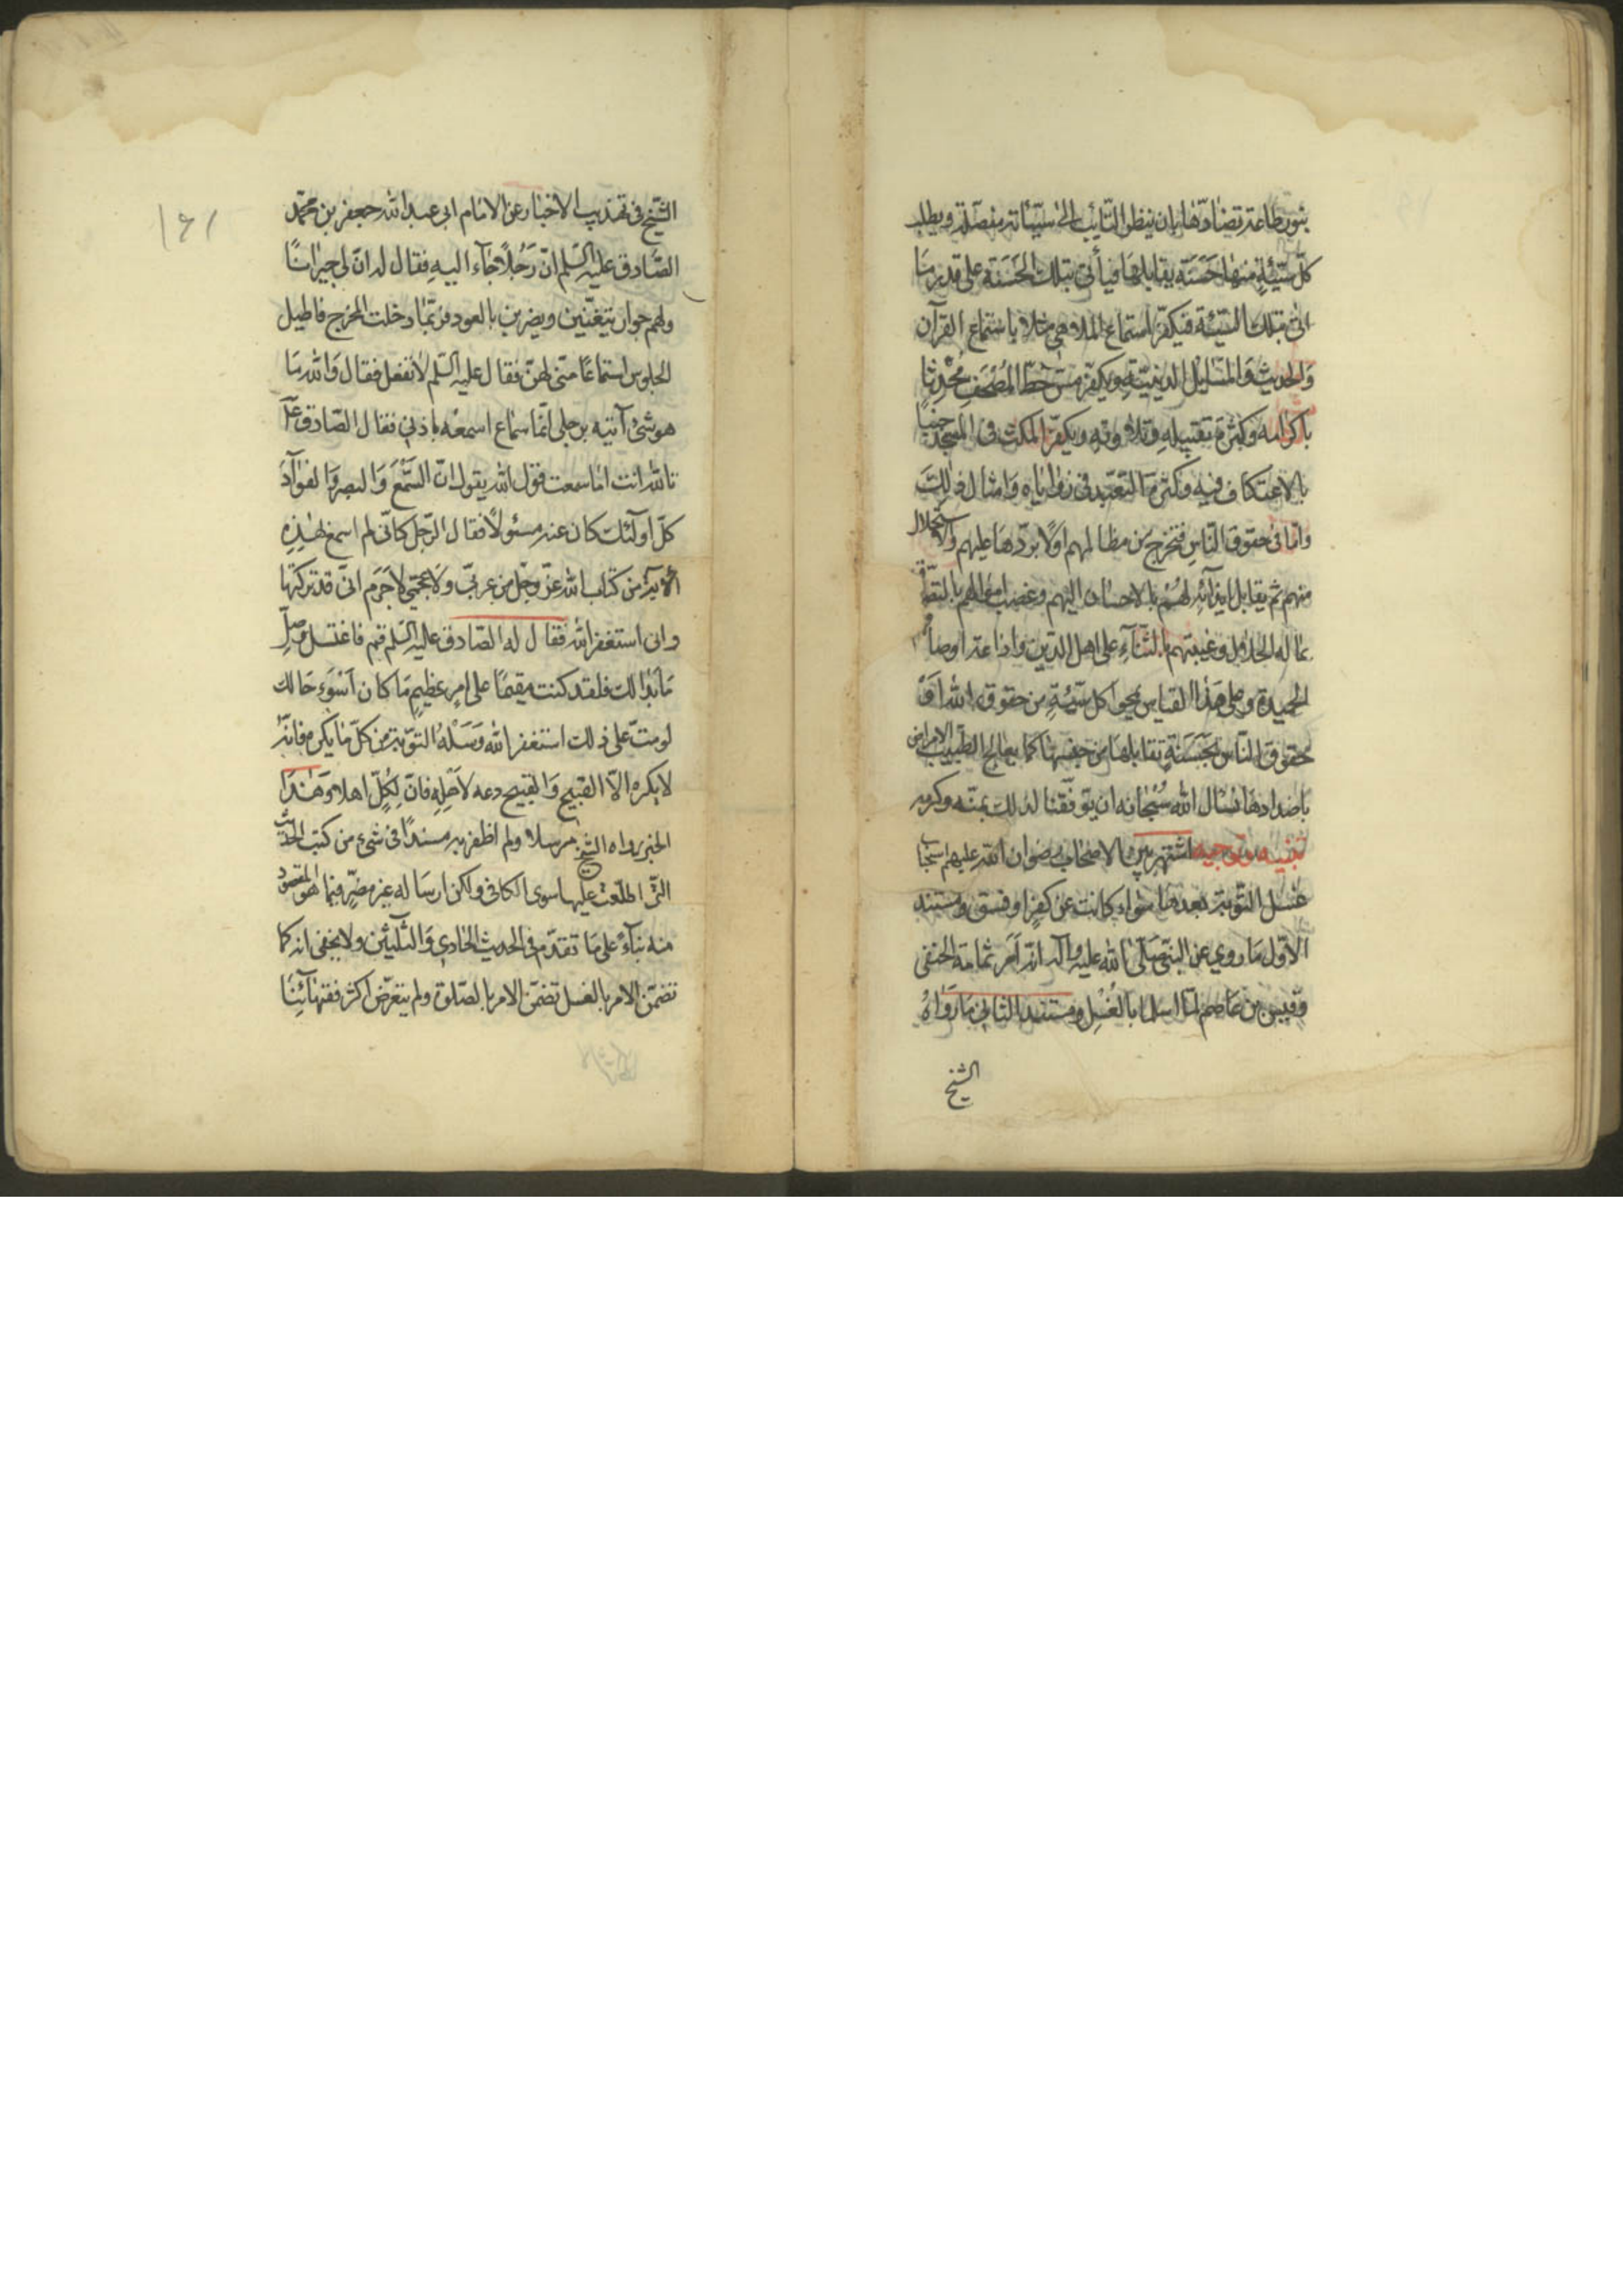 بنور طاعة تضادّها بان ينظر التّائب الى سيّئاته مفصّلة ويطلب
كلّ سيّئةٍ منها حَسَنة يقابلها فيأتى بتلك الحَسَنة على قدر مَا
اتى بتلك السّيّئة فيكفّر استماع الملاهى مثلا باستماع القرآن
وَالحديث وَالمسَايل الدينيّة ويكفّر مسّ خطّ المُصْحَف مُحْدِثا
باكرامه وكثرة تقبيله وتلاوته ويكفّر المكث فى المسجد جنبًا
بالاعتكاف فيه وكثرة التعبّد فى زواياه وَامثال ذلك
وامّا فى حقوق النّاس فتخرج من مظالمهم اوّلًا بردّها عليهم والاستحلال
منهم ثم يقابل ايذائه لهُم بالاحسان اليهم وغصب اموالهم بالتصدّق
بماله الحلال وغيبتهم بالثّنآءِ على اهل الدّين واذاعة اوصافهم
الحميدة وعلى هَذا القياس يمحوا كل سيّئةٍ من حقوق الله اَوْ
حقوق النّاس بحَسَنةٍ تقابلها من جنسها كما يعالج الطّبيب الامراض
باضدادها نسال الله سُبْحانه ان يوفّقنا لذلك بمنّه وكرمه
تنبيه وتوجيه اشتهر بين الاصحاب رضوان الله عليهم استحباب
غسل التّوبة بعدها سواء كانت عن كفرٍ او فسق ومستند
الاوّل مَا روي عن النبّى صَلّى الله عليه وآله انه اَمر ثمامة الحنفى
وقيس بن عَاصم لمّا اسلما بالغُسْلِ ومستند الثانى مَا رَوَاهُ
الشيخ
١٤١
الشّيخ فى تهذيب الاخبار عن الامَام ابى عبد الله جعفر بن محمّد
الصَّادق عليه السّلم انّ رَجُلًا جَاء اليهِ فقال له انّ لى جيرانًا
ولهم جوار يتغنّين ويضربن بالعود فربّما دخلت المخرج فاطيل
الجلوس استماعًا منّى لهنّ فقال عليه السّلم لا تفعل فقال وَالله مَا
هو شئ آتيه برجلى انّما سماع اسمعُه باذنى فقال الصّادق ع
تالله انت امَا سمعت قول الله يقول انّ السَّمْعَ وَالبصر وَالفؤآدَ
كلّ اولئك كان عنه مسئولًا فقال الرّجل كانّى لم اسمع بهٰذِهِ
الاية من كتاب الله عزّ وجّل من عربّى ولا عجمّى لا جَرَم انّى قد تركتها
وانى استغفر الله فقال له الصّادق عليه السّلم قم فاغتسل وصلّ
مَا بدا لك فلقد كنت مقيمًا على امرٍ عظيمٍ مَا كان اَسْوَءِ حَالك
لو متّ على ذلك استغفر الله وَسَلْهُ التوّبة من كلّ مَا يكره فانّه
لا يكره الّا القبيح وَالقبيح دعه لاَهْلِهِ فانّ لِكُلٍّ اهلا وَهٰذَا
الخبر رواه الشيخ مرسلا ولم اظفر به مسندًا فى شئ من كتب الحديث
التّى اطّلعت عليها سوى الكافى ولكن ارسَاله غير مضرٍّ فيما هو المقصود
منه بنآءً على مَا تقدّم فى الحديث الحَادى وَالثّلثين ولا يخفى انه كما
تضمّن الامر بالغسل تضمّن الامر بالصّلوة ولم يتعرّض اكثر فقهائِنَا